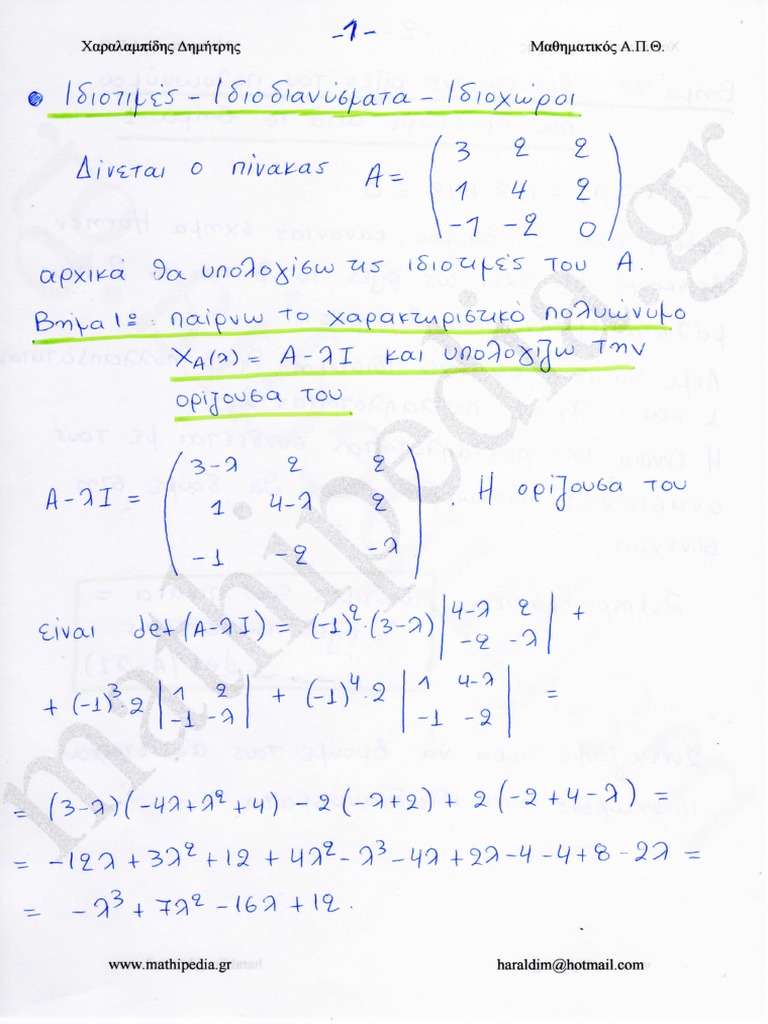 -1-
Χαραλαμπίδης Δημήτρης Μαθηματικός Α.Π.Θ.
• Ιδιοτιμές - Ιδιοδιανύσματα - Ιδιοχώροι
Δίνεται ο πίνακας A = ( 3 2 2
1 4 2
-1 -2 0 )
αρχικά θα υπολογίσω τις ιδιοτιμές του A.
Βήμα 1ο: παίρνω το χαρακτηριστικό πολυώνυμο
X_A(λ) = A-λI και υπολογίζω την
ορίζουσα του
A-λI = ( 3-λ 2 2
1 4-λ 2
-1 -2 -λ ) . Η ορίζουσα του
είναι det(A-λI) = (-1)²·(3-λ) | 4-λ 2
-2 -λ | +
+ (-1)³·2 | 1 2
-1 -λ | + (-1)⁴·2 | 1 4-λ
-1 -2 | =
= (3-λ)(-4λ+λ²+4) - 2(-λ+2) + 2(-2+4-λ) =
= -12λ+3λ²+12+4λ²-λ³-4λ+2λ-4-4+8-2λ =
= -λ³+7λ²-16λ+12.
www.mathipedia.gr haraldim@hotmail.com
mathipedia.gr